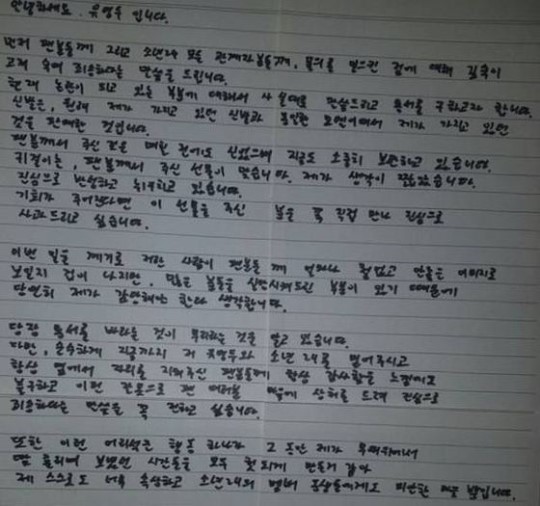 안녕하세요. 유영두 입니다.
먼저 팬분들께 그리고 소년24 모든 관계자분들께, 물의를 일으킨 점에 대해 깊숙이
고개 숙여 죄송하다는 말씀을 드립니다.
현재 논란이 되고 있는 부분에 대해서 사실대로 말씀드리고 용서를 구하고자 합니다.
신발은, 원래 제가 가지고 있던 신발과 동일한 모델이여서 제가 가지고 있던
것을 판매한 것입니다.
팬분께서 주신 것은 몇번 신었으며 지금도 소중히 보관하고 있습니다.
귀걸이는, 팬분께서 주신 선물이 맞습니다. 제가 생각이 짧았습니다.
진심으로 반성하고 뉘우치고 있습니다.
기회가 주어진다면 이 선물을 주신 분을 꼭 직접 만나 진심으로
사과드리고 싶습니다.
이번 일을 계기로 저란 사람이 팬분들께 얼마나 안좋은 이미지로
보일지 겁이 나지만, 많은 분들을 실망시켜드린 부분이 있기 때문에
당연히 제가 감안해야 한다 생각합니다.
당장 용서를 바라는 것이 무리라는 것을 알고 있습니다.
다만, 순수하게 지금까지 저 유영두와 소년24를 믿어주시고
항상 옆에서 자리를 지켜주신 팬분들께 항상 감사함을 느낌에도
불구하고 이런 잘못으로 팬 여러분 맘에 상처를 드려 진심으로
죄송하다는 말씀을 꼭 전하고 싶습니다.
또한 이런 어리석은 행동 하나가 그 동안 제가 무대위에서
땀 흘리며 보냈던 시간들을 모두 헛되게 만든거 같아
제 스스로도 너무 속상하고 소년24의 멤버 동생들에게도 미안한 마음 뿐입니다.